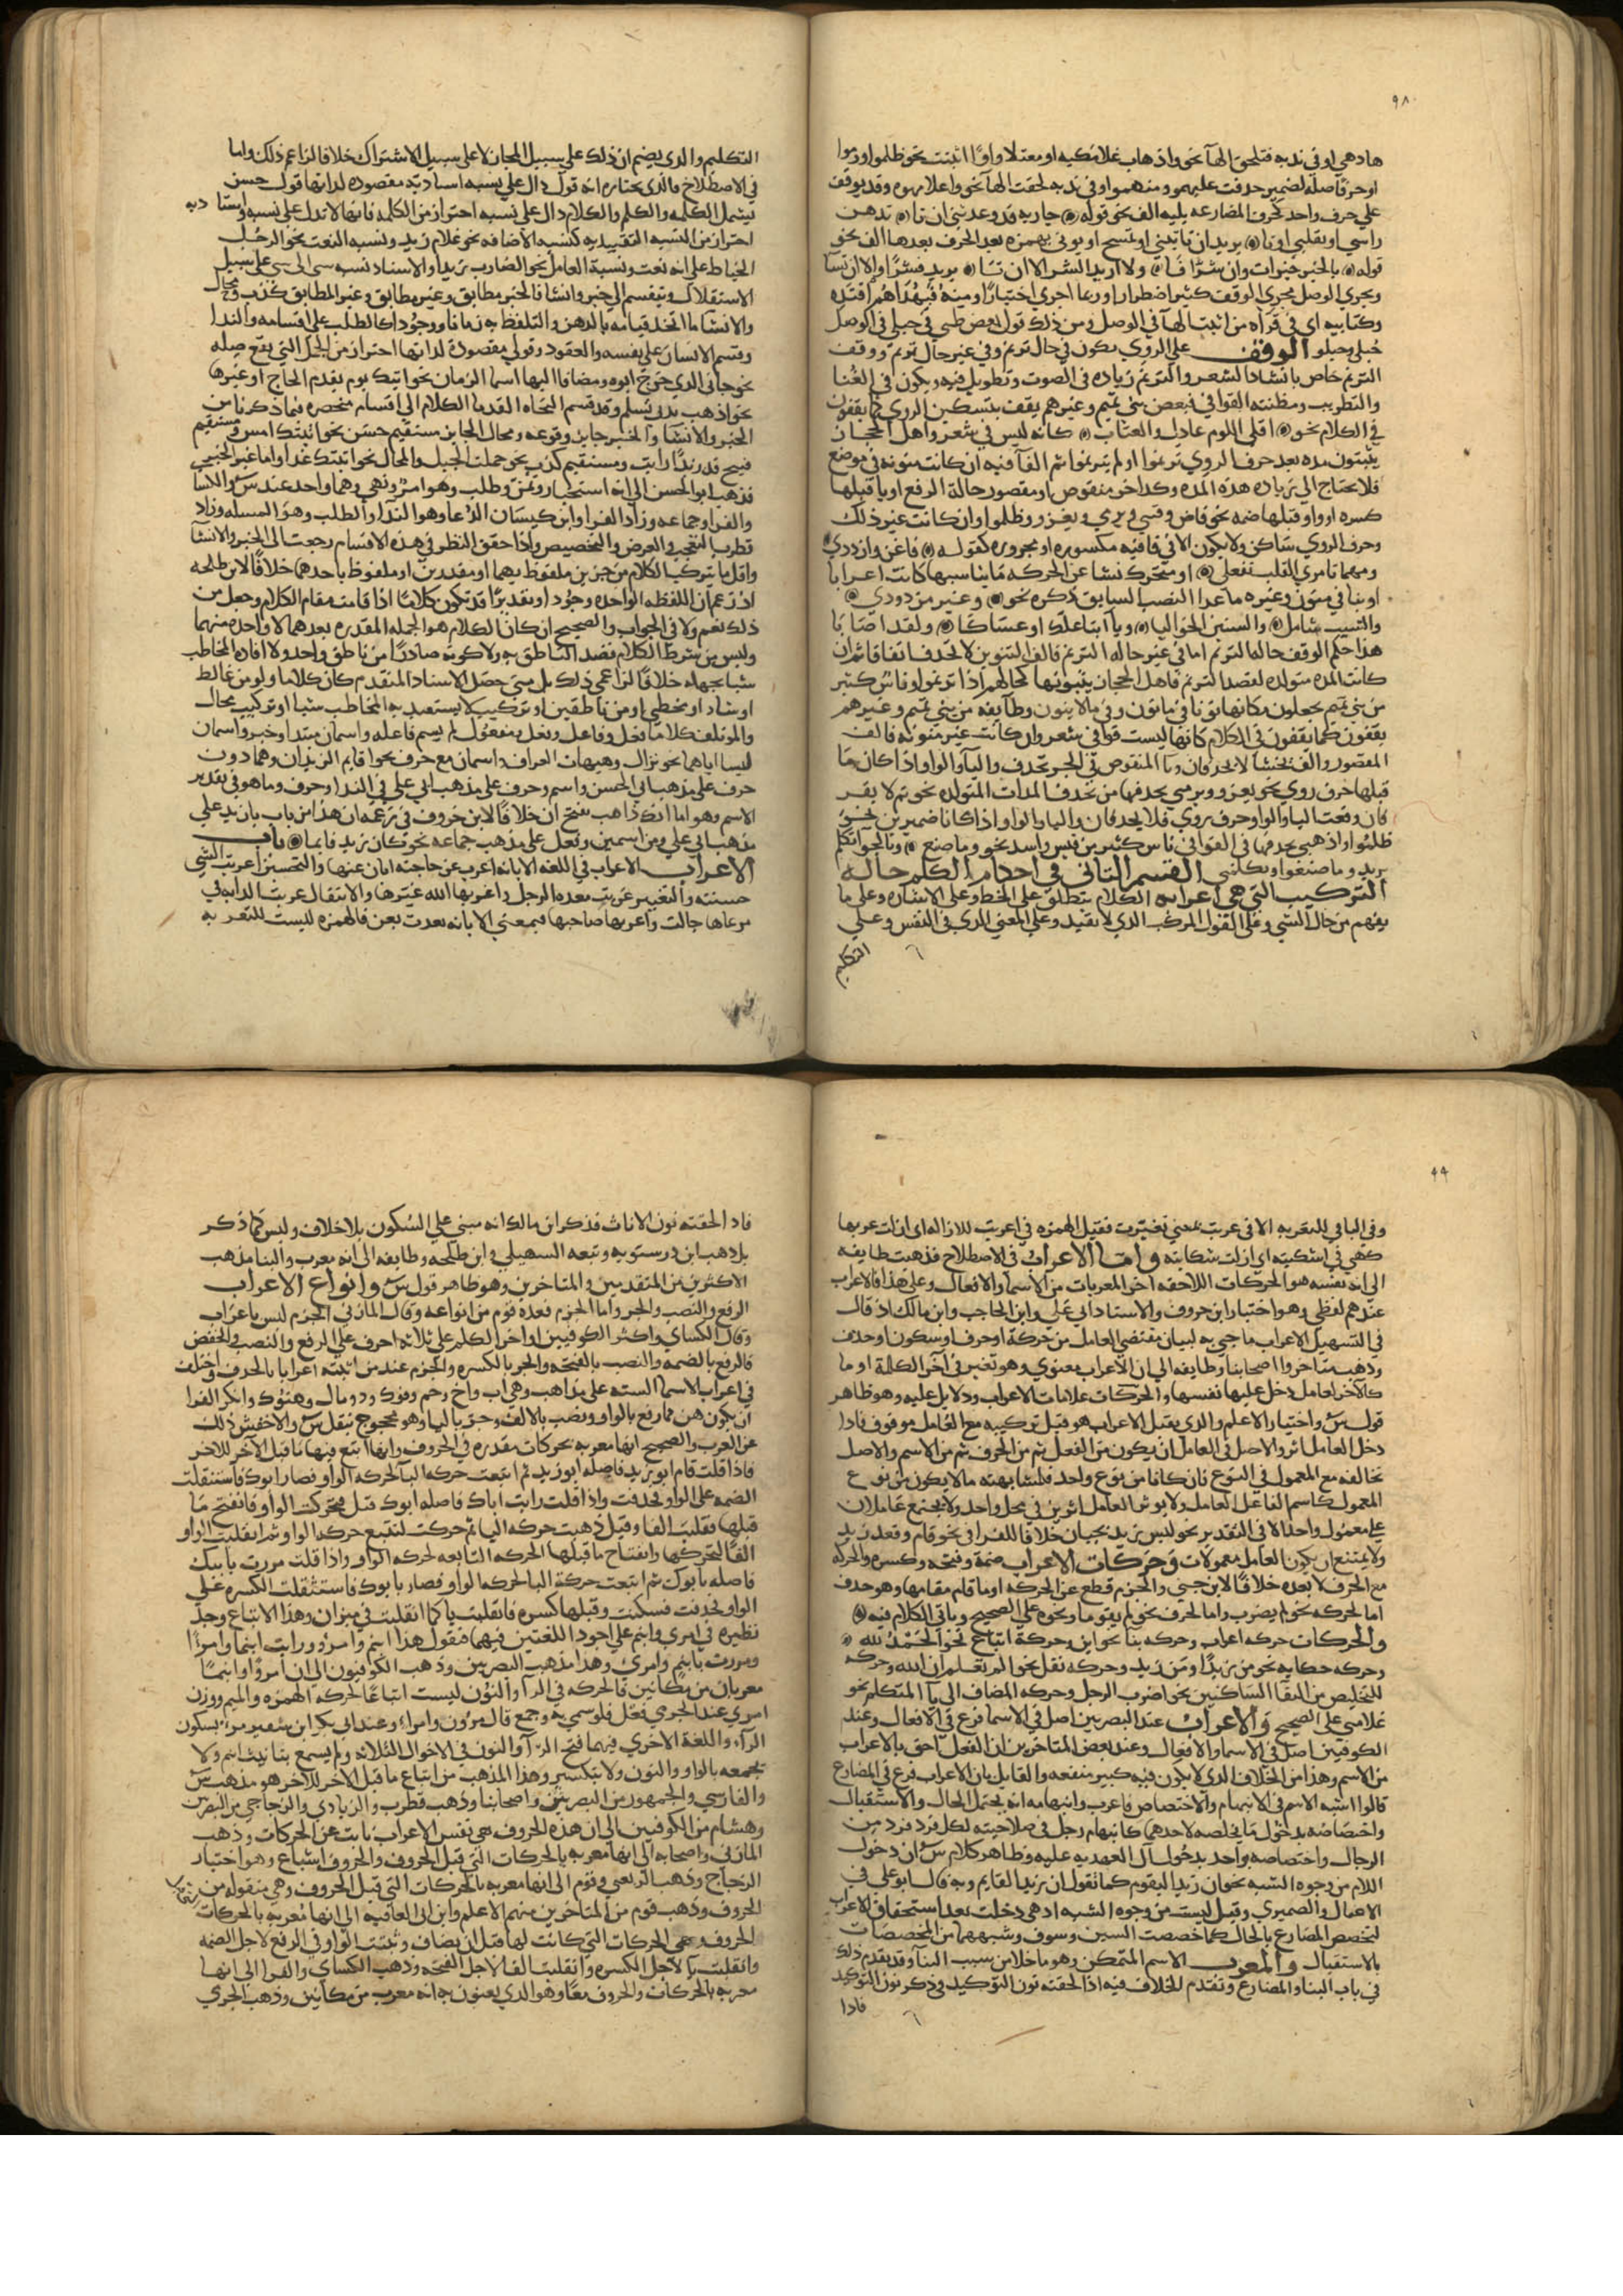 ٩٨
هاذهي او في ندبه فتلحق الهآ نحو واذهاب غلامكيه او معتلا واوًا اثبتت نحو ظلموا ورموا
او حرفا صله لضمير حذفت عليهمو ومنهمو او في ندبه لحقت الهآ نحو واغلامهوه وقد يوقف
علي حرف واحد كحرف المضارعه يليه الف نحو قوله جاريه قد وعدتني ان تا تدهن
راسي او تفلي او تا يريد ان تاتيني او تمسح او يوتي بهمزه بعد الحرف بعدها الف نحو
قوله بالخير خيرات وان شرًّا فا ولا اريد الشر الا ان تا يريد فشرًّا والا ان تشا
ويجري الوصل مجري الوقف كثيرا ضطرارا وربما اجري اختيارًا ومنه فبهداهم اقتده
وكتابيه اي في قراه من اثبت الهآ في الوصل ومن ذلك قول بعض طيي في حبلي في الوصل
حبلي وحبلو الوقف علي الروي يكون في حال ترنم وفي غير حال ترنم ووقف
الترنم خاص بانشاد الشعر والترنم زياده في الصوت وتطويل فيه ويكون في الغنا
والتطريب ومظنته القوافي فبعض بني تميم وغيرهم يقف بتسكين الروي كما يقفون
في الكلام نحو اقلي اللوم عاذل والعتاب كانه ليس في شعر واهل الحجاز
يثبتون مده بعد حرف الروي ترنموا او لم يترنموا ثم القافيه ان كانت منونه في موضع
فلا يحتاج الي زياده هذه المده وكذا خو منقوص او مقصور حالة الرفع او يا قبلها
كسره او واو قبلها ضمه نحو قاض وفتي ويرمي ويغزو وظلموا وان كانت غير ذلك
وحرف الروي ساكن ولا يكون الا في قافيه مكسوره او مجروره كقوله فاغن وازددي
ومهما تامري القلب تفعلي او متحرك نشا عن الحركه ما يناسبها كانت اعرابا
او بنا في منون وغيره ما عدا النصب السابق ذكره نحو وغير مزدودي
والشيب شامل والسنين الخواليا ويا ابتا علك او عساكا ولقد اصابا
هذا حكم الوقف حاله الترنم اما في غير حاله الترنم فالف التنوين لا تحذف اتفاقا ثم ان
كانت المده متولده لقصد الترنم فاهل الحجاز يثبتونها كحالهم اذا ترنموا وناس كثير
من بني تميم يجعلون مكانها نونا في ما نون وفي ما لا ينون وطايفه من بني تميم وغيرهم
يقفون كما يقفون في الكلام كانها ليست قوافي شعر وان كانت غير منونه فالف
المقصور والف يخشا لا يحذفان ويا المنقوص في الجر تحذف واليآ والواو اذا كان ما
قبلها حرف روي نحو يغزو ويرمي يحذفها من يحذف المدات المتولده نحو ثم لا يفر
فان وقعت اليا والواو حرف روي فلا يحذفان واليا والواو اذا كانا ضميرين نحو
ظلموا واذهبي يحذفها في القوافي ناس كثير من قيس واسد نحو وما صنع وبالجوا تكلم
يريد وما صنعوا وتكلمي القسم الثاني في احكام الكلم حالة
التركيب التي هي اعرابيه الكلام ينطلق علي الخط وعلي الاشاره وعلي ما
يفهم من حال الشي وعلي القول المركب الذي لا يفيد وعلي المعني الذي في النفس وعلي
التكليم
التكليم والذي يصح ان ذلك علي سبيل المجاز لا علي سبيل الاشتراك خلافا لزاعم ذلك واما
في الاصطلاح فالذي نختاره انه قول دال علي نسبه اسناديه مقصوده لذاتها قول جنس
يشمل الكلمه والكلم والكلام دال علي نسبه احتراز من الكلمه فانها لا تدل علي نسبه واسناديه
احتراز من النسبه التقييديه كنسبه الاضافه نحو غلام زيد ونسبه النعت نحو الرجل
الخياط علي انه نعت ونسبة العامل نحو الضارب زيدا والاسناد نسبه شي الي شي علي سبيل
الاستقلال وينقسم الي خبر وانشا فالخبر مطابق وغير مطابق وغير المطابق كذب ومحال
والانشا ما اتحد قيامه بالذهن والتلفظ به زمانا ووجودًا كالطلب علي اقسامه والندا
وقسم الانسان علي نفسه والعقود وقولي مقصودة لذاتها احتراز من الجمل التي تقع صله
نحو جاني الذي خرج ابوه ومضافا اليها اسما الزمان نحو اتيك يوم يقدم الحاج او غيرها
نحو اذهب بذي تسلم وقد قسم النحاه القدما الكلام الي اقسام منحصره فيما ذكرنا من
الخبر والانشا والخبر جايز وقوعه ومحال الجايز مستقيم حسن نحو اتيتك امس ومستقيم
قبيح قد زيدًا رايت ومستقيم كذب نحو حملت الجبل والمحال نحو اتيتك غدا واما غير الخبر
فذهب ابو الحسن الي انه استخبار وتمنٍّ وطلب وهو امر ونهي وهما واحد عند س والكسا
والفرا وجماعه وزاد الفرا وابن كيسان الدعا وهو الندآ والطلب وهو المسله وزاد
قطرب التعجب والعرض والتحضيض واذا حقق النظر في هذه الاقسام رجعت الي الخبر والانشآ
واقل ما يتركب الكلام من جزين ملفوظ بهما او مقدرين او ملفوظ باحدهما خلافًا لابن طلحه
اذ زعم ان اللفظه الواحده وجودا وتقديرًا قد تكون كلامًا اذا قامت مقام الكلام وجعل من
ذلك نعم ولا في الجواب والصحيح ان كان الكلام هو الجمله المقدره بعدهما لا واحده منهما
وليس من شرط الكلام قصد الناطق به ولا كونه صادرًا من ناطق واحد ولا افاده المخاطب
شيا يجهله خلافًا لزاعمي ذلك بل متي حصل الاسناد المتقدم كان كلاما ولو من غالط
او شاد او مخطي او من ناطقين او تركيب لا يستفيد به المخاطب شيا او تركيب محال
والموتلف كلاما فعل وفاعل وفعل ومفعول لم يسم فاعله واسمان مبتدا وخبر واسمان
ليسا اياهما نحو نزال وهيهات العراق واسمان مع حرف نحو اقايم الزيدان وهما دون
حرف علي مذهب ابي الحسن واسم وحرف علي مذهب ابي علي في الندا وحرف وما هو في تقدير
الاسم وهو اما انك ذاهب بفتح ان خلافًا لابن خروف في زعمه ان هذا من باب يا زيد علي
مذهب ابي علي ومن اسمين وفعل علي مذهب جماعه نحو كان زيد قايما باب
الاعراب الاعراب في اللغه الابانه اعرب عن حاجته ابان عنها والتحسين اعربت الشي
حسنته والتغيير عربت معده الرجل واعربها الله غيرها والانتقال عربت الدابه في
مرعاها جالت واعربها صاحبها فبمعني الابانه تعدت بعن فالهمزه ليست للتعديه
٩٩
وفي الباقي للتعديه الا في عربت بمعني تغيرت فقيل الهمزه في اعربت للازاله اي ازلت عربها
كهي في اشكيته اي ازلت شكايته واما الاعراب في الاصطلاح فذهبت طايفه
الي انه نفسه هو الحركات اللاحقه اخر المعربات من الاسما والافعال وعلي هذا فالاعراب
عندهم لفظي وهو اختيار ابن خروف والاستاد ابي علي وابن الحاجب وابن مالك اذ قال
في التسهيل الاعراب ما جي به لبيان مقتضي العامل من حركة او حرف او سكون او حذف
وذهب متاخروا اصحابنا وطايفه الي ان الاعراب معنوي وهو تغير في آخر الكلمة او ما
كالآخر لعامل دخل عليها نفسها والحركات علامات الاعراب ودلايل عليه وهو ظاهر
قول س واختيار الاعلم والذي يقبل الاعراب هو قبل تركيبه مع العامل موقوف فاذا
دخل العامل اثر والاصل في العامل ان يكون من الفعل ثم من الحرف ثم من الاسم والاصل
تخالفه مع المعمول في النوع فان كانا من نوع واحد فلمشابهته ما لا يكون من نوع
المعمول كاسم الفاعل العامل ولا يوثر العامل اثرين في محل واحد ولا يجتمع عاملان
علي معمول واحد الا في التقدير نحو ليس زيد بجبان خلافا للفرا في نحو قام وقعد زيد
ولا يمتنع ان يكون العامل معمولات وحركات الاعراب ضمة وفتحه وكسره والحركه
مع الحرف لا بعده خلافًا لابن جني والجزم قطع عن الحركه او ما قام مقامها وهو حذف
اما لحركه نحو لم يضرب واما لحرف نحو لم يقوما ونحوه علي الصحيح وياتي الكلام فيه
والحركات حركه اعراب وحركه بنا نحو اين وحركة اتباع نحو الحمد لله
وحركه حكايه نحو من زيدًا ومن زيد وحركه نقل نحو الم تعلم ان الله وحركه
للتخليص من التقا الساكنين نحو اضرب الرجل وحركه المضاف الي يآ المتكلم نحو
غلامي علي الصحيح والاعراب عند البصريين اصل في الاسما فرع في الافعال وعند
الكوفيين اصل في الاسما والافعال وعند بعض المتاخرين ان الفعل احق بالاعراب
من الاسم وهذا من الخلاف الذي لا يكون فيه كبير منفعه والقايل بان الاعراب فرع في المضارع
قالوا اشبه الاسم في الابهام والاختصاص فاعرب وابهامه انه يحتمل الحال والاستقبال
واختصاصه بدخول ما يخلصه لاحدهما كابهام رجل في صلاحيته لكل فرد فرد من
الرجال واختصاصه بواحد بدخول ال العهديه عليه وظاهر كلام س ان دخول
اللام من وجوه الشبه نحو ان زيدا ليقوم كما تقول ان زيدا لقايم وبه قال ابو علي في
الاغفال والصيمري وقيل ليست من وجوه الشبه اذ هي دخلت بعد استحقاق الاعراب
لتخصص المضارع بالحال كما خصصت السين وسوف وشبههما من المخصصات
بالاستقبال والمعرب الاسم المتمكن وهو ما خلا من سبب البنآ وقد تقدم ذلك
في باب البنا والمضارع وتقدم الخلاف فيه اذا لحقته نون التوكيد في ذكر نون التوكيد
فاذا
فاذا لحقته نون الاناث فذكر ابن مالك انه مبني علي السكون بلا خلاف وليس كما ذكر
بل ذهب ابن درستويه وتبعه السهيلي وابن طلحه وطايفه الي انه معرب والبنا مذهب
الاكثرين من المتقدمين والمتاخرين وهو ظاهر قول س وانواع الاعراب
الرفع والنصب والجر واما الجزم فعده قوم من انواعه وقال المازني الجزم ليس باعراب
وقال الكساي واكثر الكوفيين اواخر الكلم علي ثلاثه احرف علي الرفع والنصب والخفض
فالرفع بالضمه والنصب بالفتحه والجر بالكسره والجزم عند من اثبته اعرابا بالحذف واختلف
في اعراب الاسما السته علي مذاهب وهي اب واخ وحم وفوك وذو مال وهنوك وانكر الفرا
ان يكون هن مما رفع بالواو ونصب بالالف وجر باليا وهو محجوج بنقل س والاخفش ذلك
عن العرب والصحيح انها معربه بحركات مقدره في الحروف وانها اتبع فيها ما قبل الآخر للاخر
فاذا قلت قام ابو زيد فاصله ابو زيد ثم اتبعت حركه البا لحركه الواو فصار ابوك فاستثقلت
الضمه علي الواو فحذفت واذا قلت رايت اباك فاصله ابوك قيل تحركت الواو وانفتح ما
قبلها فقلبت الفا وقيل ذهبت حركه البا ثم حركت لتتبع حركه الواو ثم انقلبت الواو
الفا لتحركها وانفتاح ما قبلها الحركه التابعه لحركه الواو واذا قلت مررت بابيك
فاصله بابوك ثم اتبعت حركة البا لحركه الواو فصار بابوك فاستثقلت الكسره علي
الواو فحذفت فسكنت وقبلها كسره فانقلبت يا كما انقلبت في ميزان وهذا الاتباع وجد
نظيره في امري وابنم علي اجود اللغتين فيهما فتقول هذا ابنم وامرؤ ورايت ابنما وامرءًا
ومررت بابنم وامري وهذا مذهب البصريين وذهب الكوفيون الي ان امرءًا وابنمًا
معربان من مكانين فالحركه في الرآ والنون ليست اتباعًا لحركه الهمزه والميم ووزن
امري عند الجرمي فعل فلو سمي به وجمع قال مرؤن وامراء وعند ابي بكر ابن شقير مرء بسكون
الرآء واللغة الاخري فيهما فتح الرآ والنون في الاحوال الثلاثه ولم يسمع بتانيث ابنم ولا
بجمعه بالواو والنون ولا بتكسير وهذا المذهب من اتباع ما قبل الآخر للآخر هو مذهب س
والفارسي والجمهور من البصريين واصحابنا وذهب قطرب والزيادي والزجاجي من البصريين
وهشام من الكوفيين الي ان هذه الحروف هي نفس الاعراب نابت عن الحركات وذهب
المازني واصحابه الي انها معربه بالحركات التي قبل الحروف والحروف اشباع وهو اختيار
الزجاج وذهب الربعي وقوم الي انها معربه بالحركات التي قبل الحروف وهي منقوله من
الحروف وذهب قوم من المتاخرين منهم الاعلم وابن ابي العافيه الي انها معربه بالحركات
الحروف وهي الحركات التي كانت لها قبل ان يضاف وثبتت الواو في الرفع لاجل الضمه
وانقلبت يآ لاجل الكسره وانقلبت الفا لاجل الفتحه وذهب الكساي والفرا الي انها
معربه بالحركات والحروف معًا وهو الذي يعنون به انه معرب من مكانين وذهب الجرمي